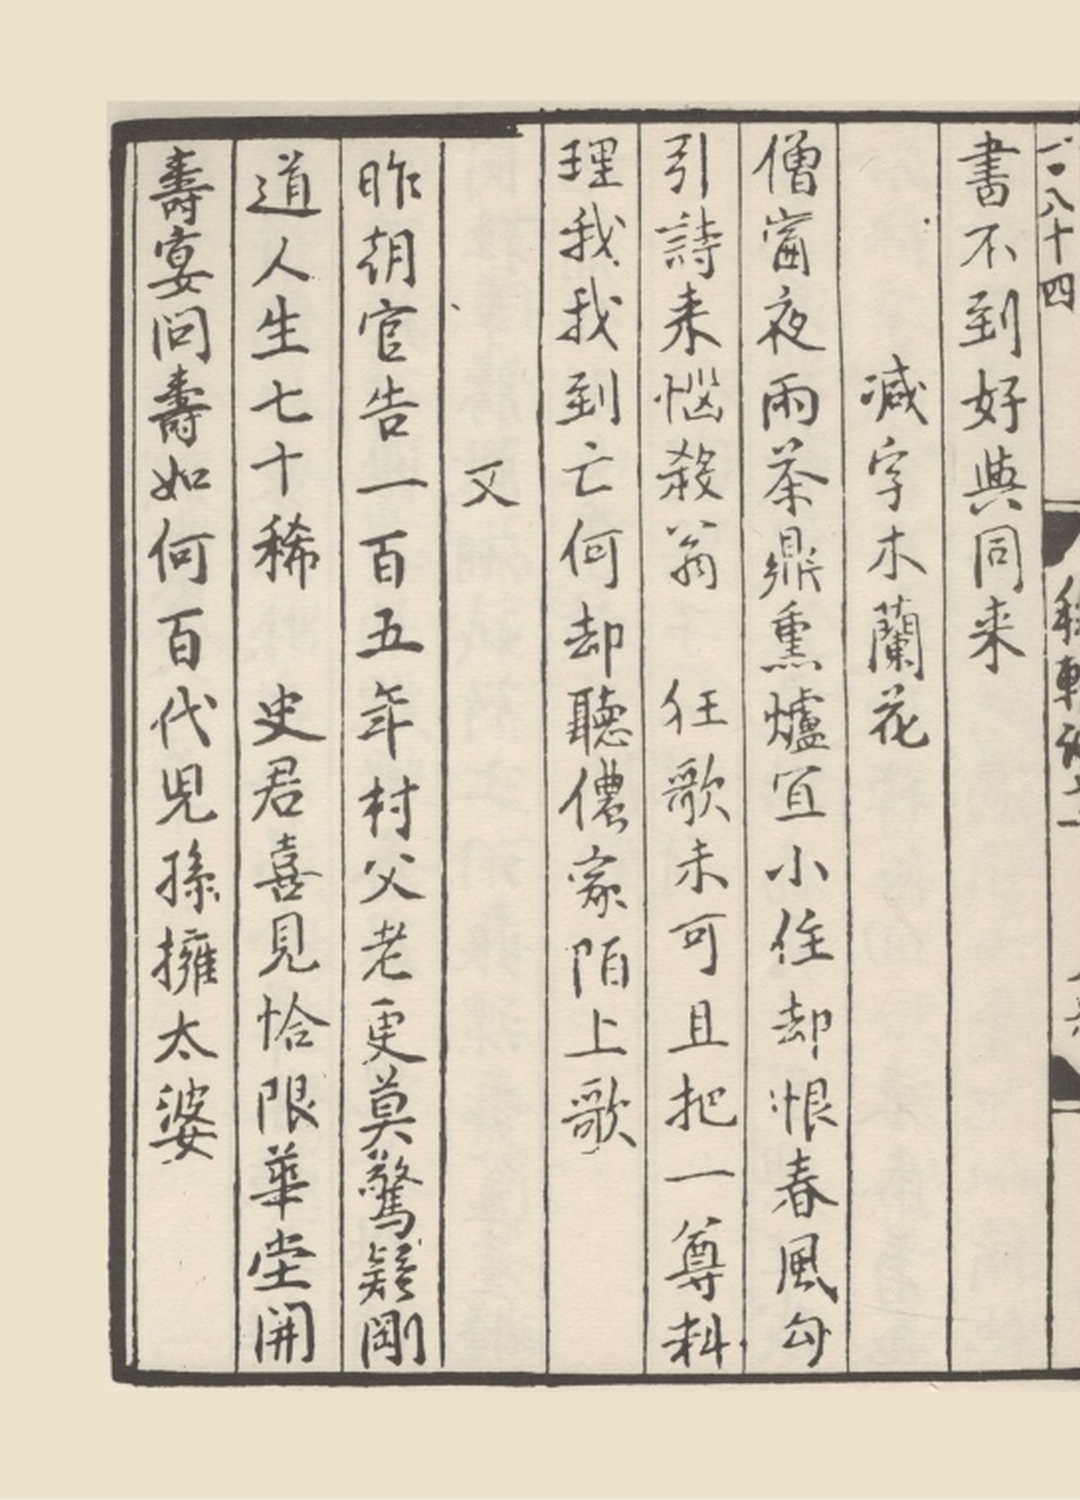 一百八十四
書不到好與同来
減字木蘭花
僧窗夜雨茶鼎熏爐宜小住却恨春風勾
引詩来惱殺翁　狂歌未可且把一尊料
理我我到亡何却聽儂家陌上歌
又
昨朝官告一百五年村父老更莫驚疑剛
道人生七十稀　史君喜見恰限華堂開
壽宴問壽如何百代児孫擁太婆